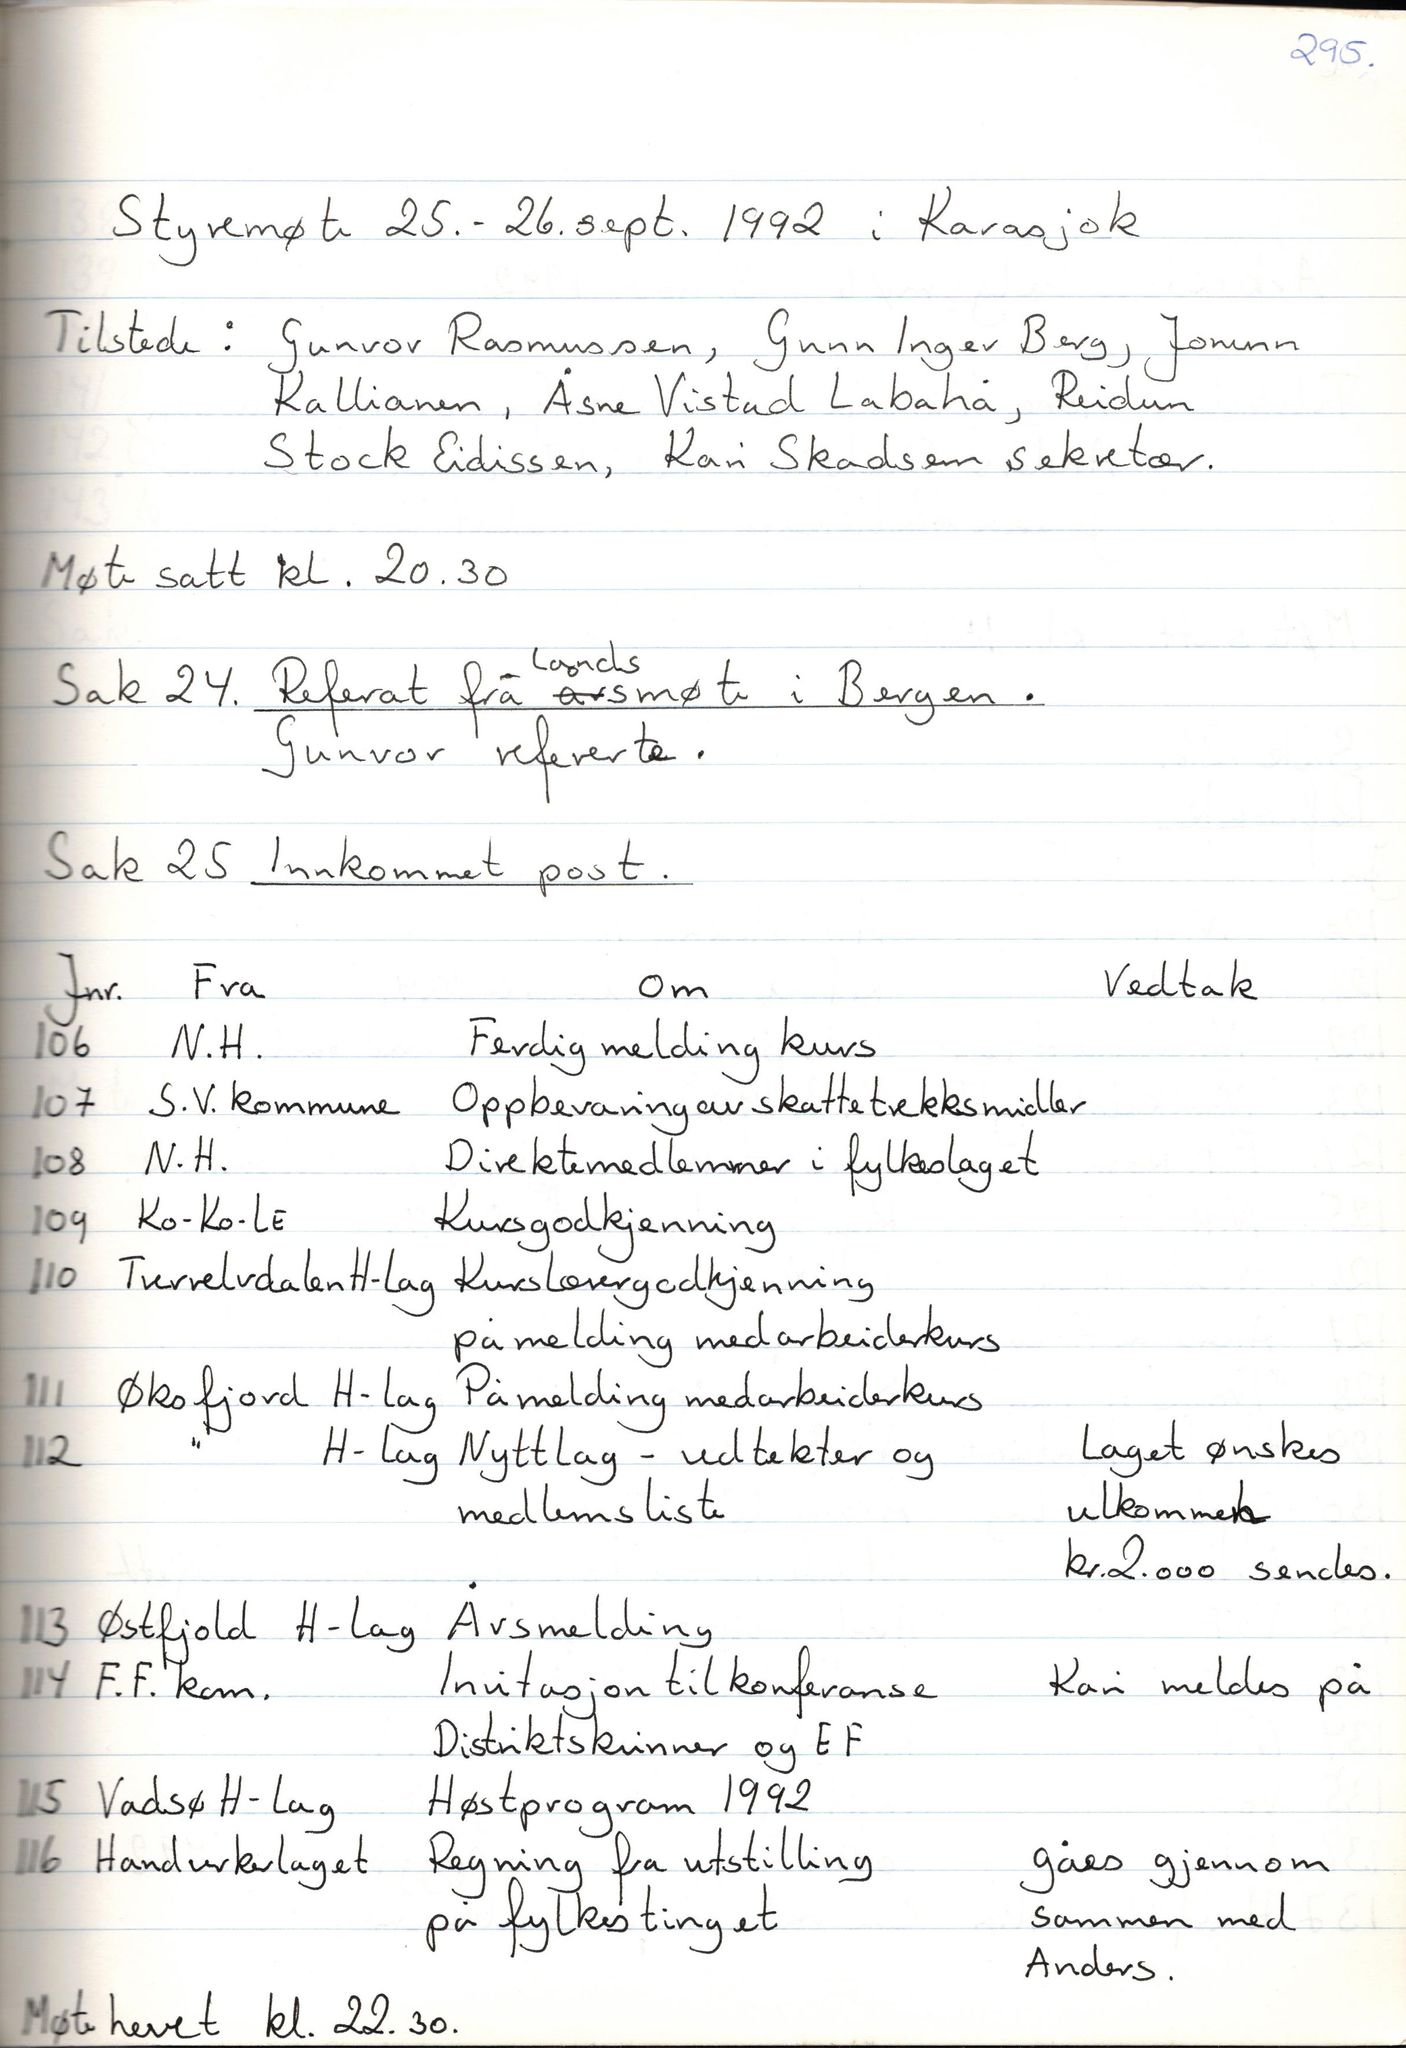 295.
Styremøte 25.-26.sept. 1992 i Karasjok
Tilstede: Gunvor Rasmussen, Gunn Inger Berg, Jorunn
Kallianen, Åsne Vistad Labahå, Reidun
Stock Eidissen, Kari Skadsem sekretær.
Møte satt kl. 20.30
Sak 24. Referat frå lands årsmøte i Bergen.
Gunvor refererte.
Sak 25 Innkommet post.
Jnr. Fra Om Vedtak
106 N.H. Ferdigmelding kurs
107 S.V. kommune Oppbevaring av skattetrekksmidler
108 N.H. Direktemedlemmer i fylkeslaget
109 Ko-Ko-LE Kursgodkjenning
110 Tverrelvdalen H-lag Kurslærergodkjenning
påmelding medarbeiderkurs
111 Øksfjord H-lag Påmelding medarbeiderkurs
112 " H-lag Nytt lag - vedtekter og Laget ønskes
medlemsliste velkommen
kr.2.000 sendes.
113 Østfjold H-lag Årsmelding
114 F.F. kom. Invitasjon til konferanse Kari meldes på
Distriktskvinner og EF
115 Vadsø H-lag Høstprogram 1992
116 Handverkerlaget Regning fra utstilling gåes gjennom
på fylkestinget sammen med
Anders.
Møte hevet kl. 22.30.